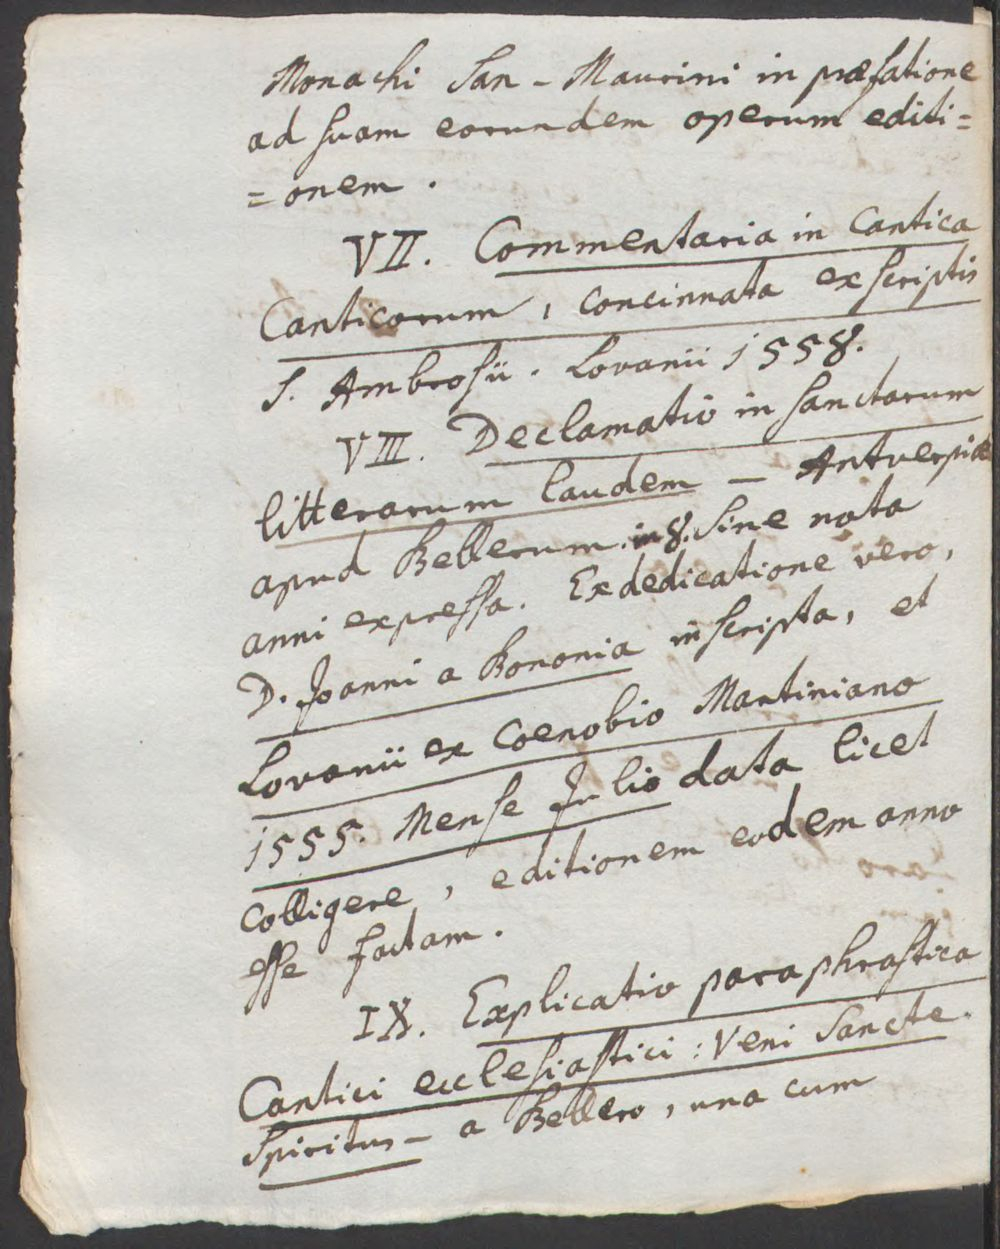 Monachi San-Maurini in præfatione
ad suam eorundem operum editi=
=onem.
VII. Commentaria in Cantica
Canticorum, concinnata ex scriptis
S. Ambrosii. Lovanii 1558.
VIII. Declamatio in sanctarum
litterarum laudem — Antverpiæ
apud Bellerum. in 8. sine nota
anni expressa. Ex dedicatione vero,
D. Joanni a Bononia inscripta, et
Lovanii ex Coenobio Martiniano
1555. Mense Julio data licet
colligere, editionem eodem anno
esse factam.
IX. Explicatio paraphrastica
Cantici ecclesiastici: Veni Sancte
Spiritus — a Bellero, una cum